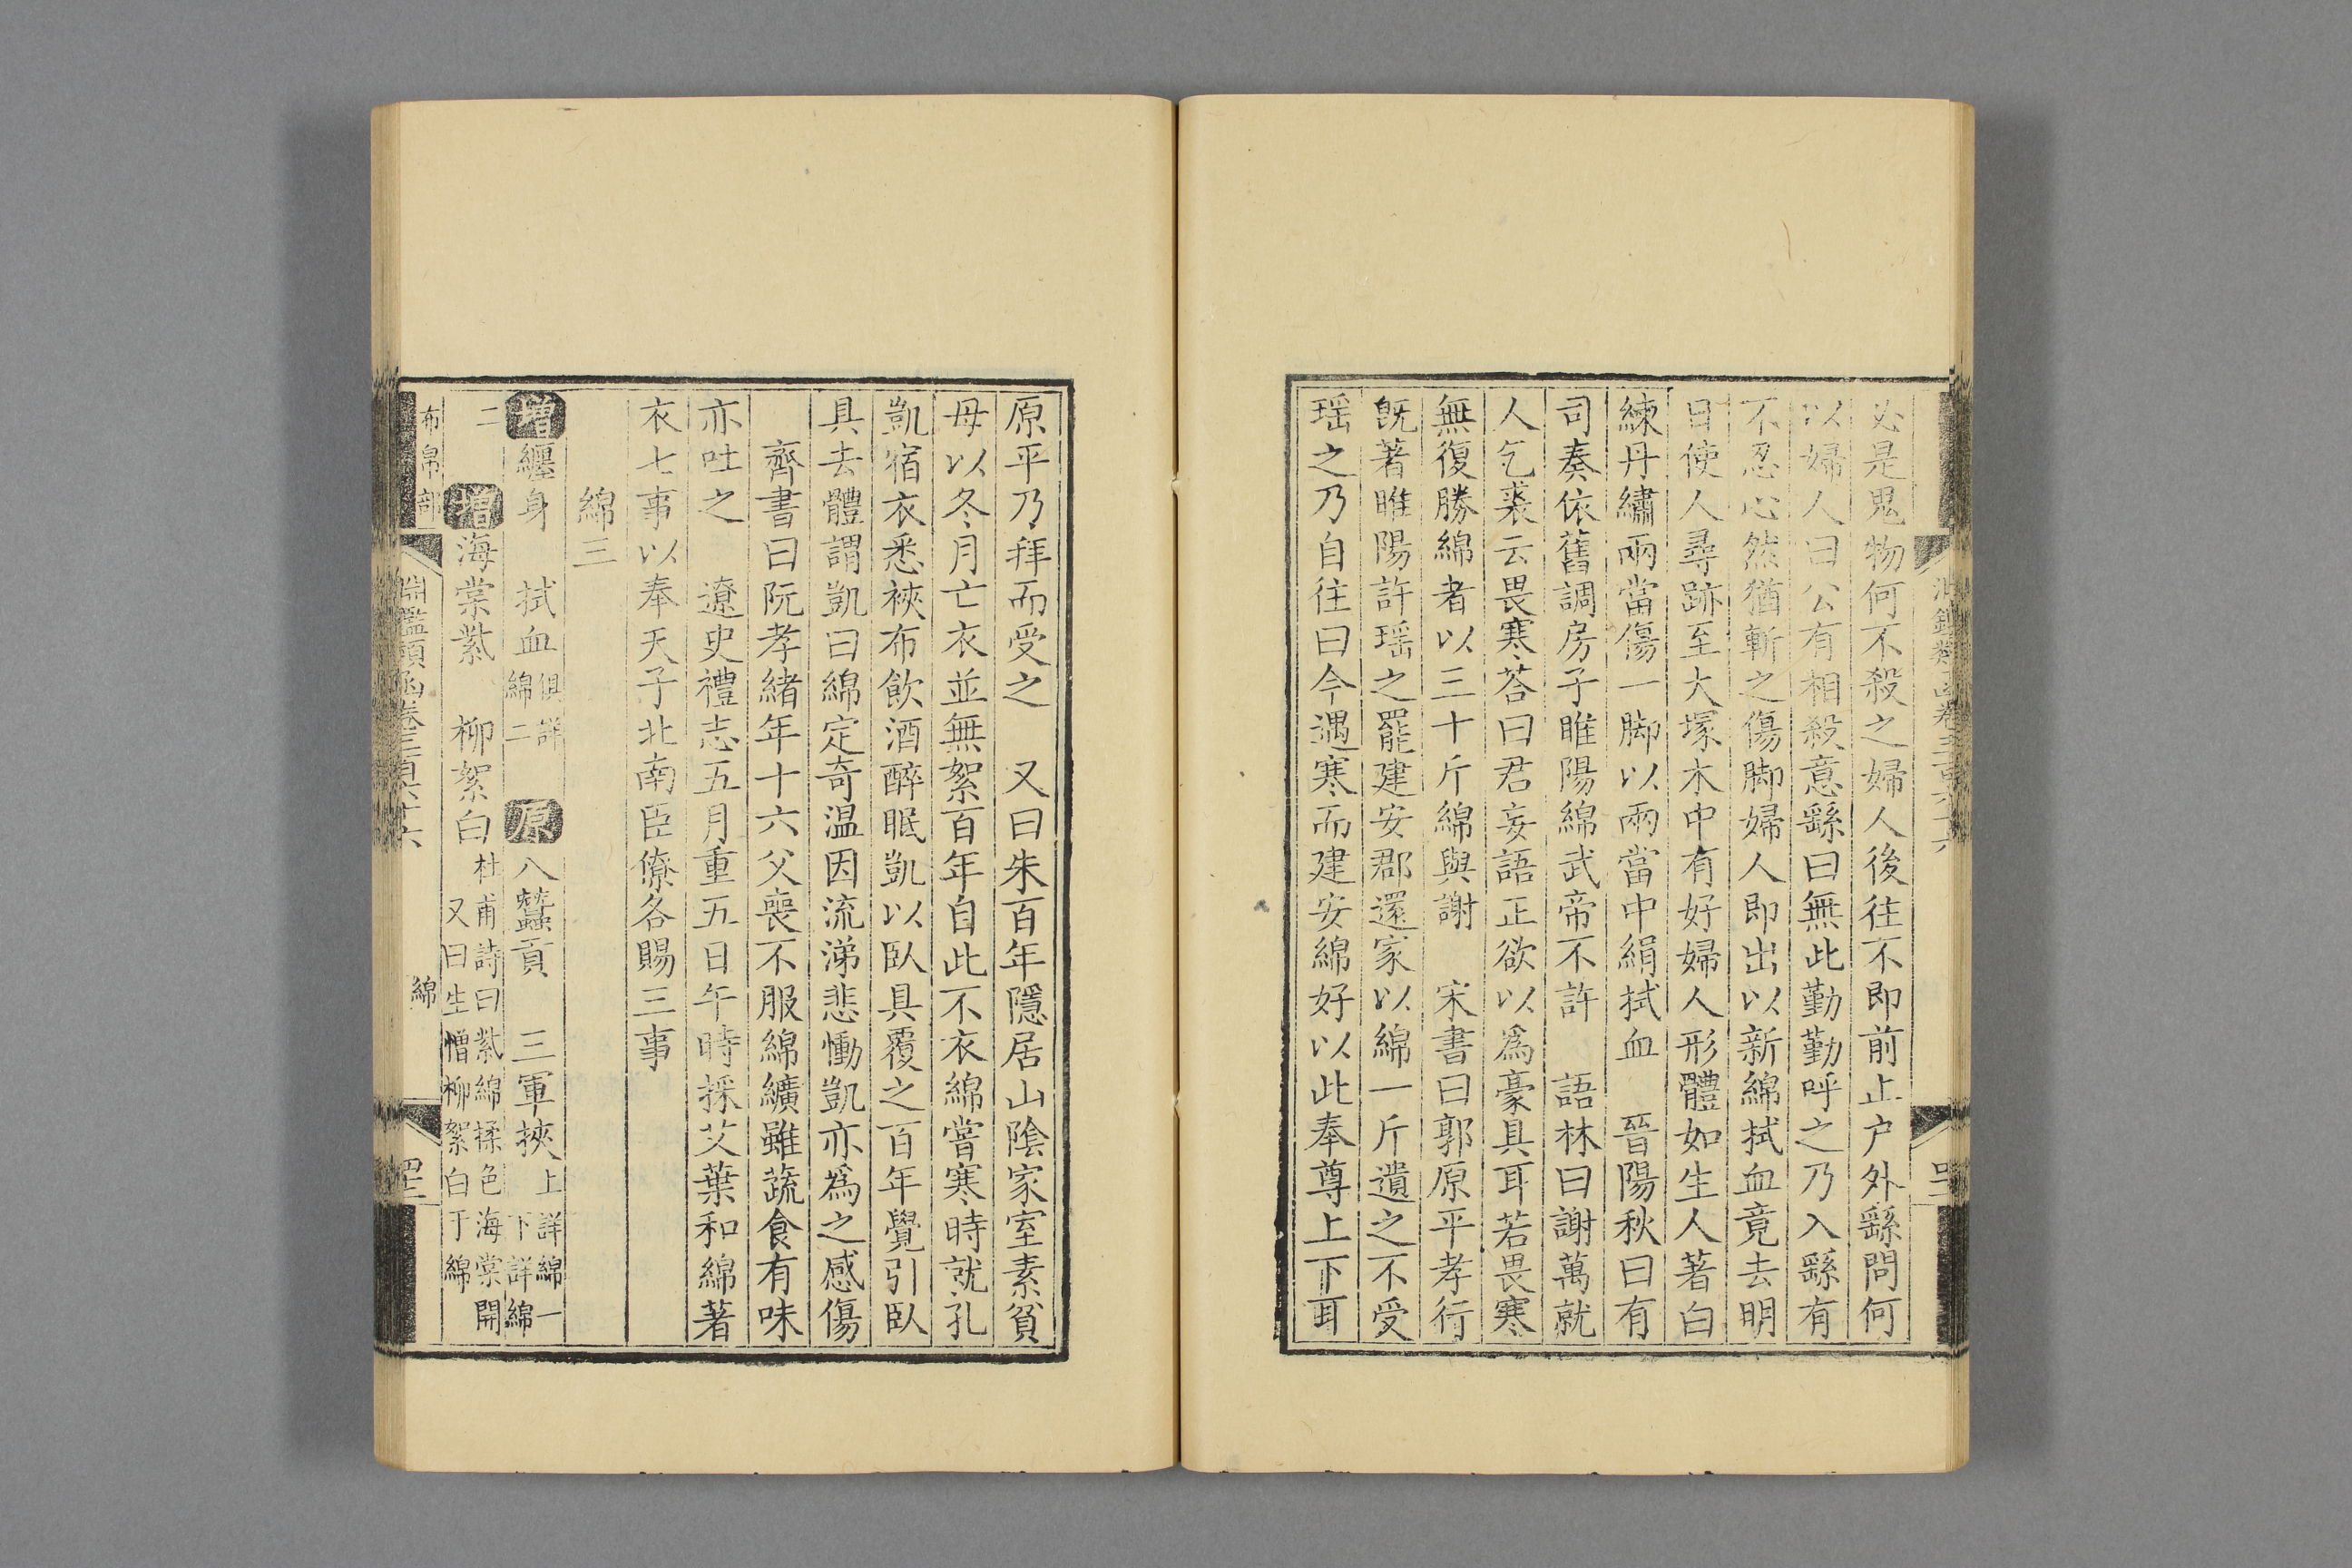 必是鬼物何不殺之婦人後往不即前止户外繇問何
以婦人曰公有相殺意繇曰無此勤勤呼之乃入繇有
不忍心然猶斬之傷脚婦人即出以新綿拭血竟去明
日使人尋跡至大塚木中有好婦人形體如生人著白
練丹繡兩當傷一脚以兩當中絹拭血　晉陽秋曰有
司奏依舊調房子睢陽綿武帝不許　語林曰謝萬就
人乞裘云畏寒荅曰君妄語正欲以爲豪具耳若畏寒
無復勝綿者以三十斤綿與謝　宋書曰郭原平孝行
旣著睢陽許瑶之罷建安郡還家以綿一斤遺之不受
瑶之乃自往曰今遇寒而建安綿好以此奉尊上下耳
原平乃拜而受之　又曰朱百年隱居山陰家室素貧
母以冬月亡衣並無絮百年自此不衣綿嘗寒時就孔
凱宿衣悉裌布飲酒醉眠凱以臥具覆之百年覺引臥
具去體謂凱曰綿定奇温因流涕悲慟凱亦爲之感傷
齊書曰阮孝緒年十六父喪不服綿纊雖蔬食有味
亦吐之　遼史禮志五月重五日午時採艾葉和綿著
衣七事以奉天子北南臣僚各賜三事
綿三
增纒身　拭血俱詳綿二　原八蠶貢　三軍挾上詳綿一下詳綿
二　增海棠紫　柳絮白杜甫詩曰紫綿揉色海棠開又曰生憎柳絮白于綿
布帛部　淵鑑類函卷三百六十六　綿　四十二